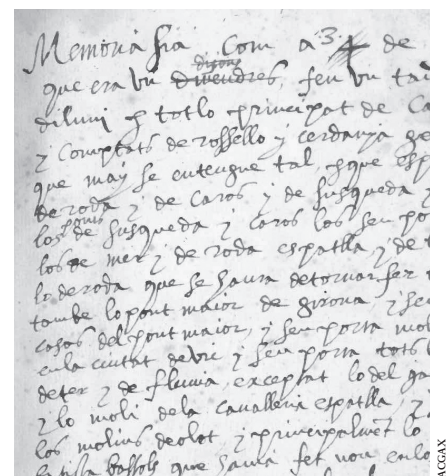 Memoria sia Com a 3 4 de
digous
que era vn divendres, feu vn tal
diluvi p totlo principat de Ca
y Comptats de rossello y cerdanya ge
que may se entengue tal, p que esp
de roda y de Caros y de susqueda y
ponts
los de susqueda y Caros los seu po
los de mer y de roda espatlla y de
lo de roda que se haura detornar fer
tambe lo pont maior de girona y seu
casas del pont maior, y seu porta mol
en la ciutat de vic y seu porta tots
deter y de fluvia, exceptat lo del ga
y lo moli dela cavalleria espatlla, y
los molins de olot y principalmēt lo
bassols que haura fet nou enlo
ACGAX